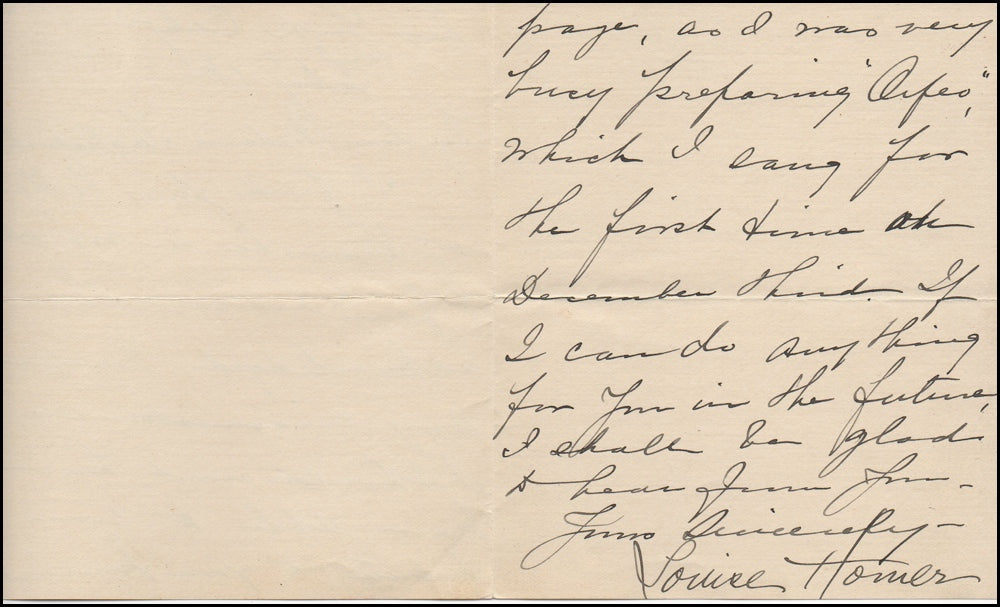 page, as I was very
busy preparing "Orfeo,"
which I sang for
the first time on
December third. If
I can do anything
for you in the future,
I shall be glad
to hear from you -
Yours Sincerely -
Louise Homer